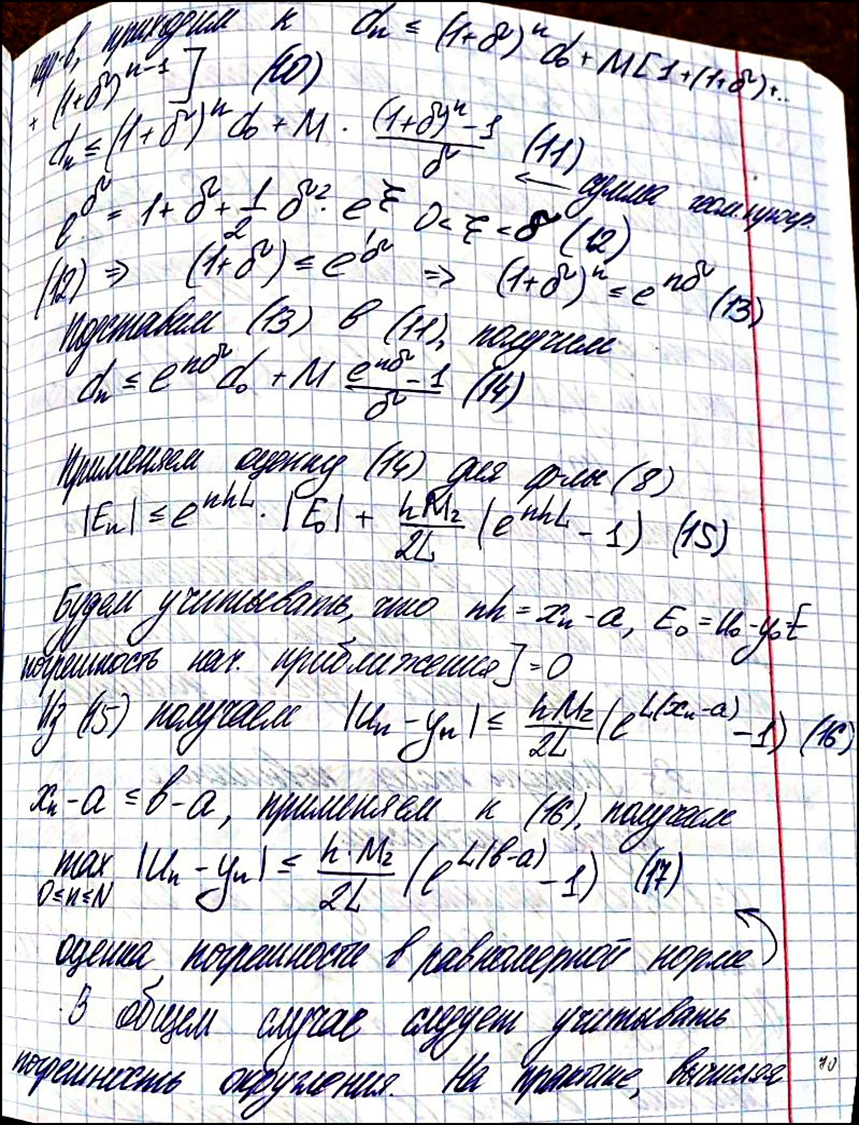 нер-в, приходим к dₙ ≤ (1+δ)ⁿ d₀ + M[1+(1+δ)+..
+ (1+δ)ⁿ⁻¹] (10)
dₙ ≤ (1+δ)ⁿ d₀ + M · ((1+δ)ⁿ - 1)/δ (11)
← сумма геом. прогр.
e^δ = 1 + δ + 1/2 δ² · e^ξ 0 < ξ < δ (12)
(12) ⇒ (1+δ) ≤ e^δ ⇒ (1+δ)ⁿ ≤ e^(nδ) (13)
Подставим (13) в (11), получаем
dₙ ≤ e^(nδ) d₀ + M (e^(nδ) - 1)/δ (14)
Применяем оценку (14) для ф-лы (8)
|Eₙ| ≤ e^(nhL) · |E₀| + hM₂/2L (e^(nhL) - 1) (15)
Будем учитывать, что nh = xₙ - a, E₀ = u₀ - y₀ = [
погрешность нач. приближения] = 0
Из (15) получаем |uₙ - yₙ| ≤ hM₂/2L (e^(L(xₙ-a)) - 1) (16)
xₙ - a ≤ в - a, применяем к (16), получаем
max |uₙ - yₙ| ≤ h·M₂/2L (e^(L(в-a)) - 1) (17)
0≤n≤N
оценка погрешности в равномерной норме
В общем случае следует учитывать
погрешность округления. На практике, вычисляя